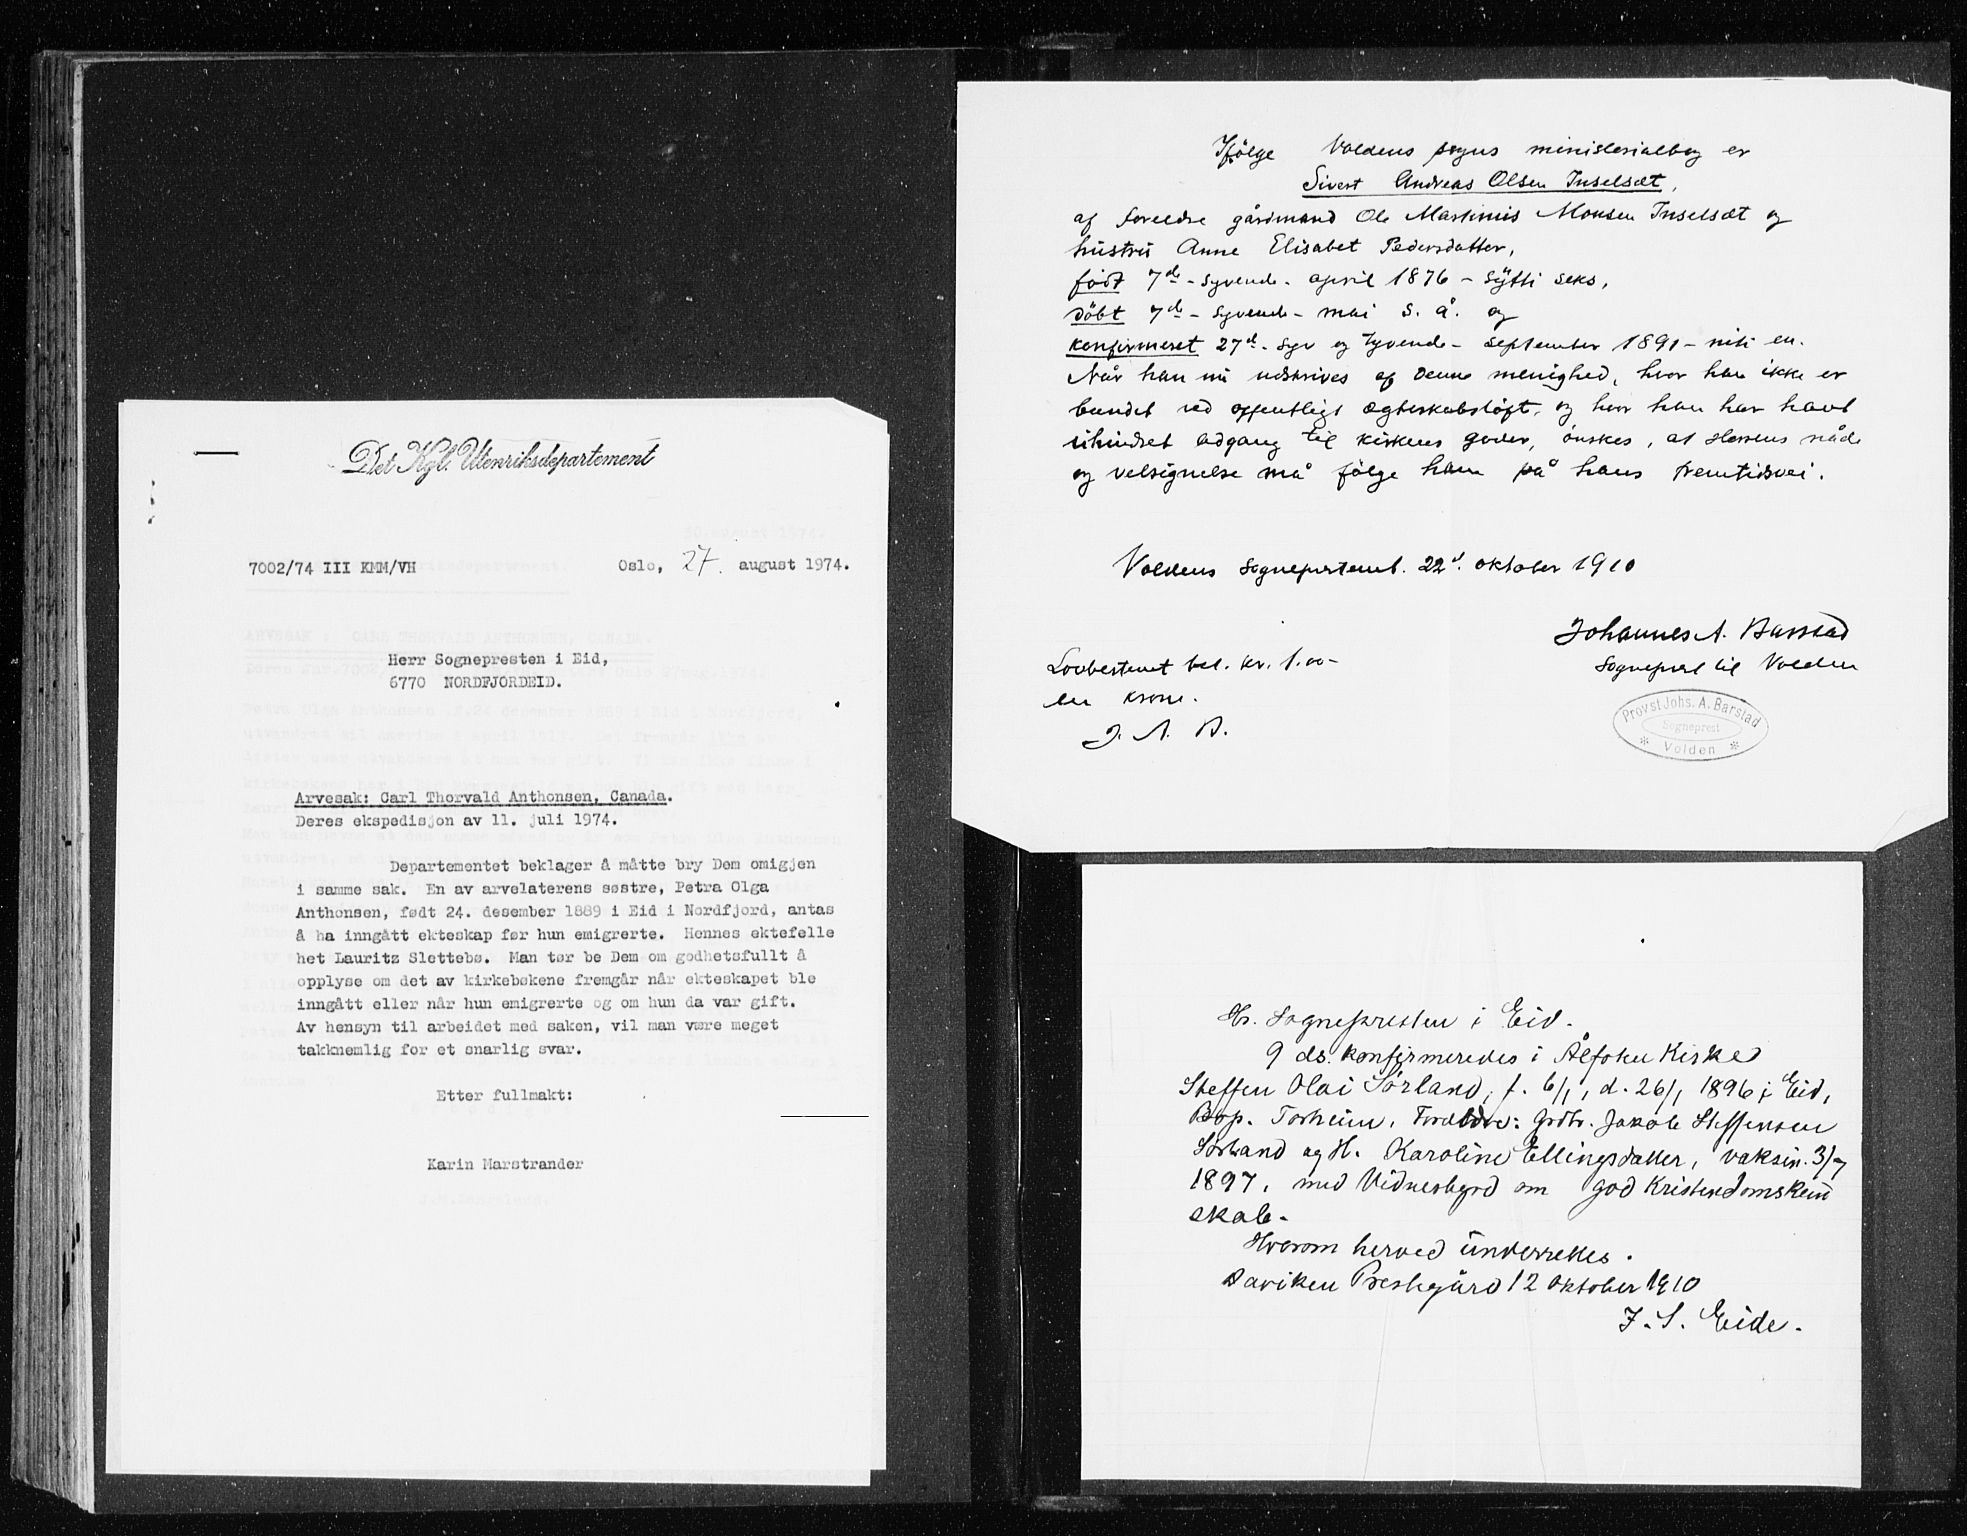 Det Kgl. Utenriksdepartement
7002/74 III KMM/VH
Oslo, 27. august 1974.
Herr Sognepresten i Eid,
6770 NORDFJORDEID.
Arvesak: Carl Thorvald Anthonsen, Canada.
Deres ekspedisjon av 11. juli 1974.
Departementet beklager å måtte bry Dem omigjen
i samme sak. En av arvelaterens søstre, Petra Olga
Anthonsen, født 24. desember 1889 i Eid i Nordfjord, antas
å ha inngått ekteskap før hun emigrerte. Hennes ektefelle
het Lauritz Slettebø. Man tør be Dem om godhetsfullt å
opplyse om det av kirkebøkene fremgår når ekteskapet ble
inngått eller når hun emigrerte og om hun da var gift.
Av hensyn til arbeidet med saken, vil man være meget
takknemlig for et snarlig svar.
Etter fullmakt:
Karin Marstrander
Ifölge Voldens sogns ministerialbog er
Sivert Andreas Olsen Inselsæt,
af foreldre gårdmand Ole Martinius Monsen Inselsæt og
hustru Anne Elisabet Pedersdatter,
född 7de - syvende - april 1876 - sytti seks,
döbt 7de - syvende - mai s. å. og
konfirmeret 27de - syv og tyvende - september 1891 - nitti en.
Når han nu udskrives af denne menighed, hvor han ikke er
bundet ved offentligt ægteskabslöft, og hvor han har havt
uhindret adgang til kirkens goder, önskes, at Herrens nåde
og velsignelse må fölge ham på hans fremtidsvei.
Voldens sogneprestemb. 22d. oktober 1910
Johannes A. Barstad
Sogneprest til Volden
Lovbestemt bet. kr. 1.00 -
en krone.
J. A. B.
Provst Johs. A. Barstad
Sogneprest
* Volden *
Hr. Sognepresten i Eid.
9 ds. konfirmeredes i Ålfoten Kirke
Steffen Olai Sörland, f. 6/1, d. 26/1 1896 i Eid,
Bop. Torheim. Foreldre: Grdbr. Jakob Steffensen
Sörland og H. Karoline Ellingsdatter, vaksin. 3/7
1897, med Vidnesbyrd om god Kristendomskund
skab.
Hvorom herved underrettes.
Daviken Prestegård 12 oktober 1910
J. S. Eide.